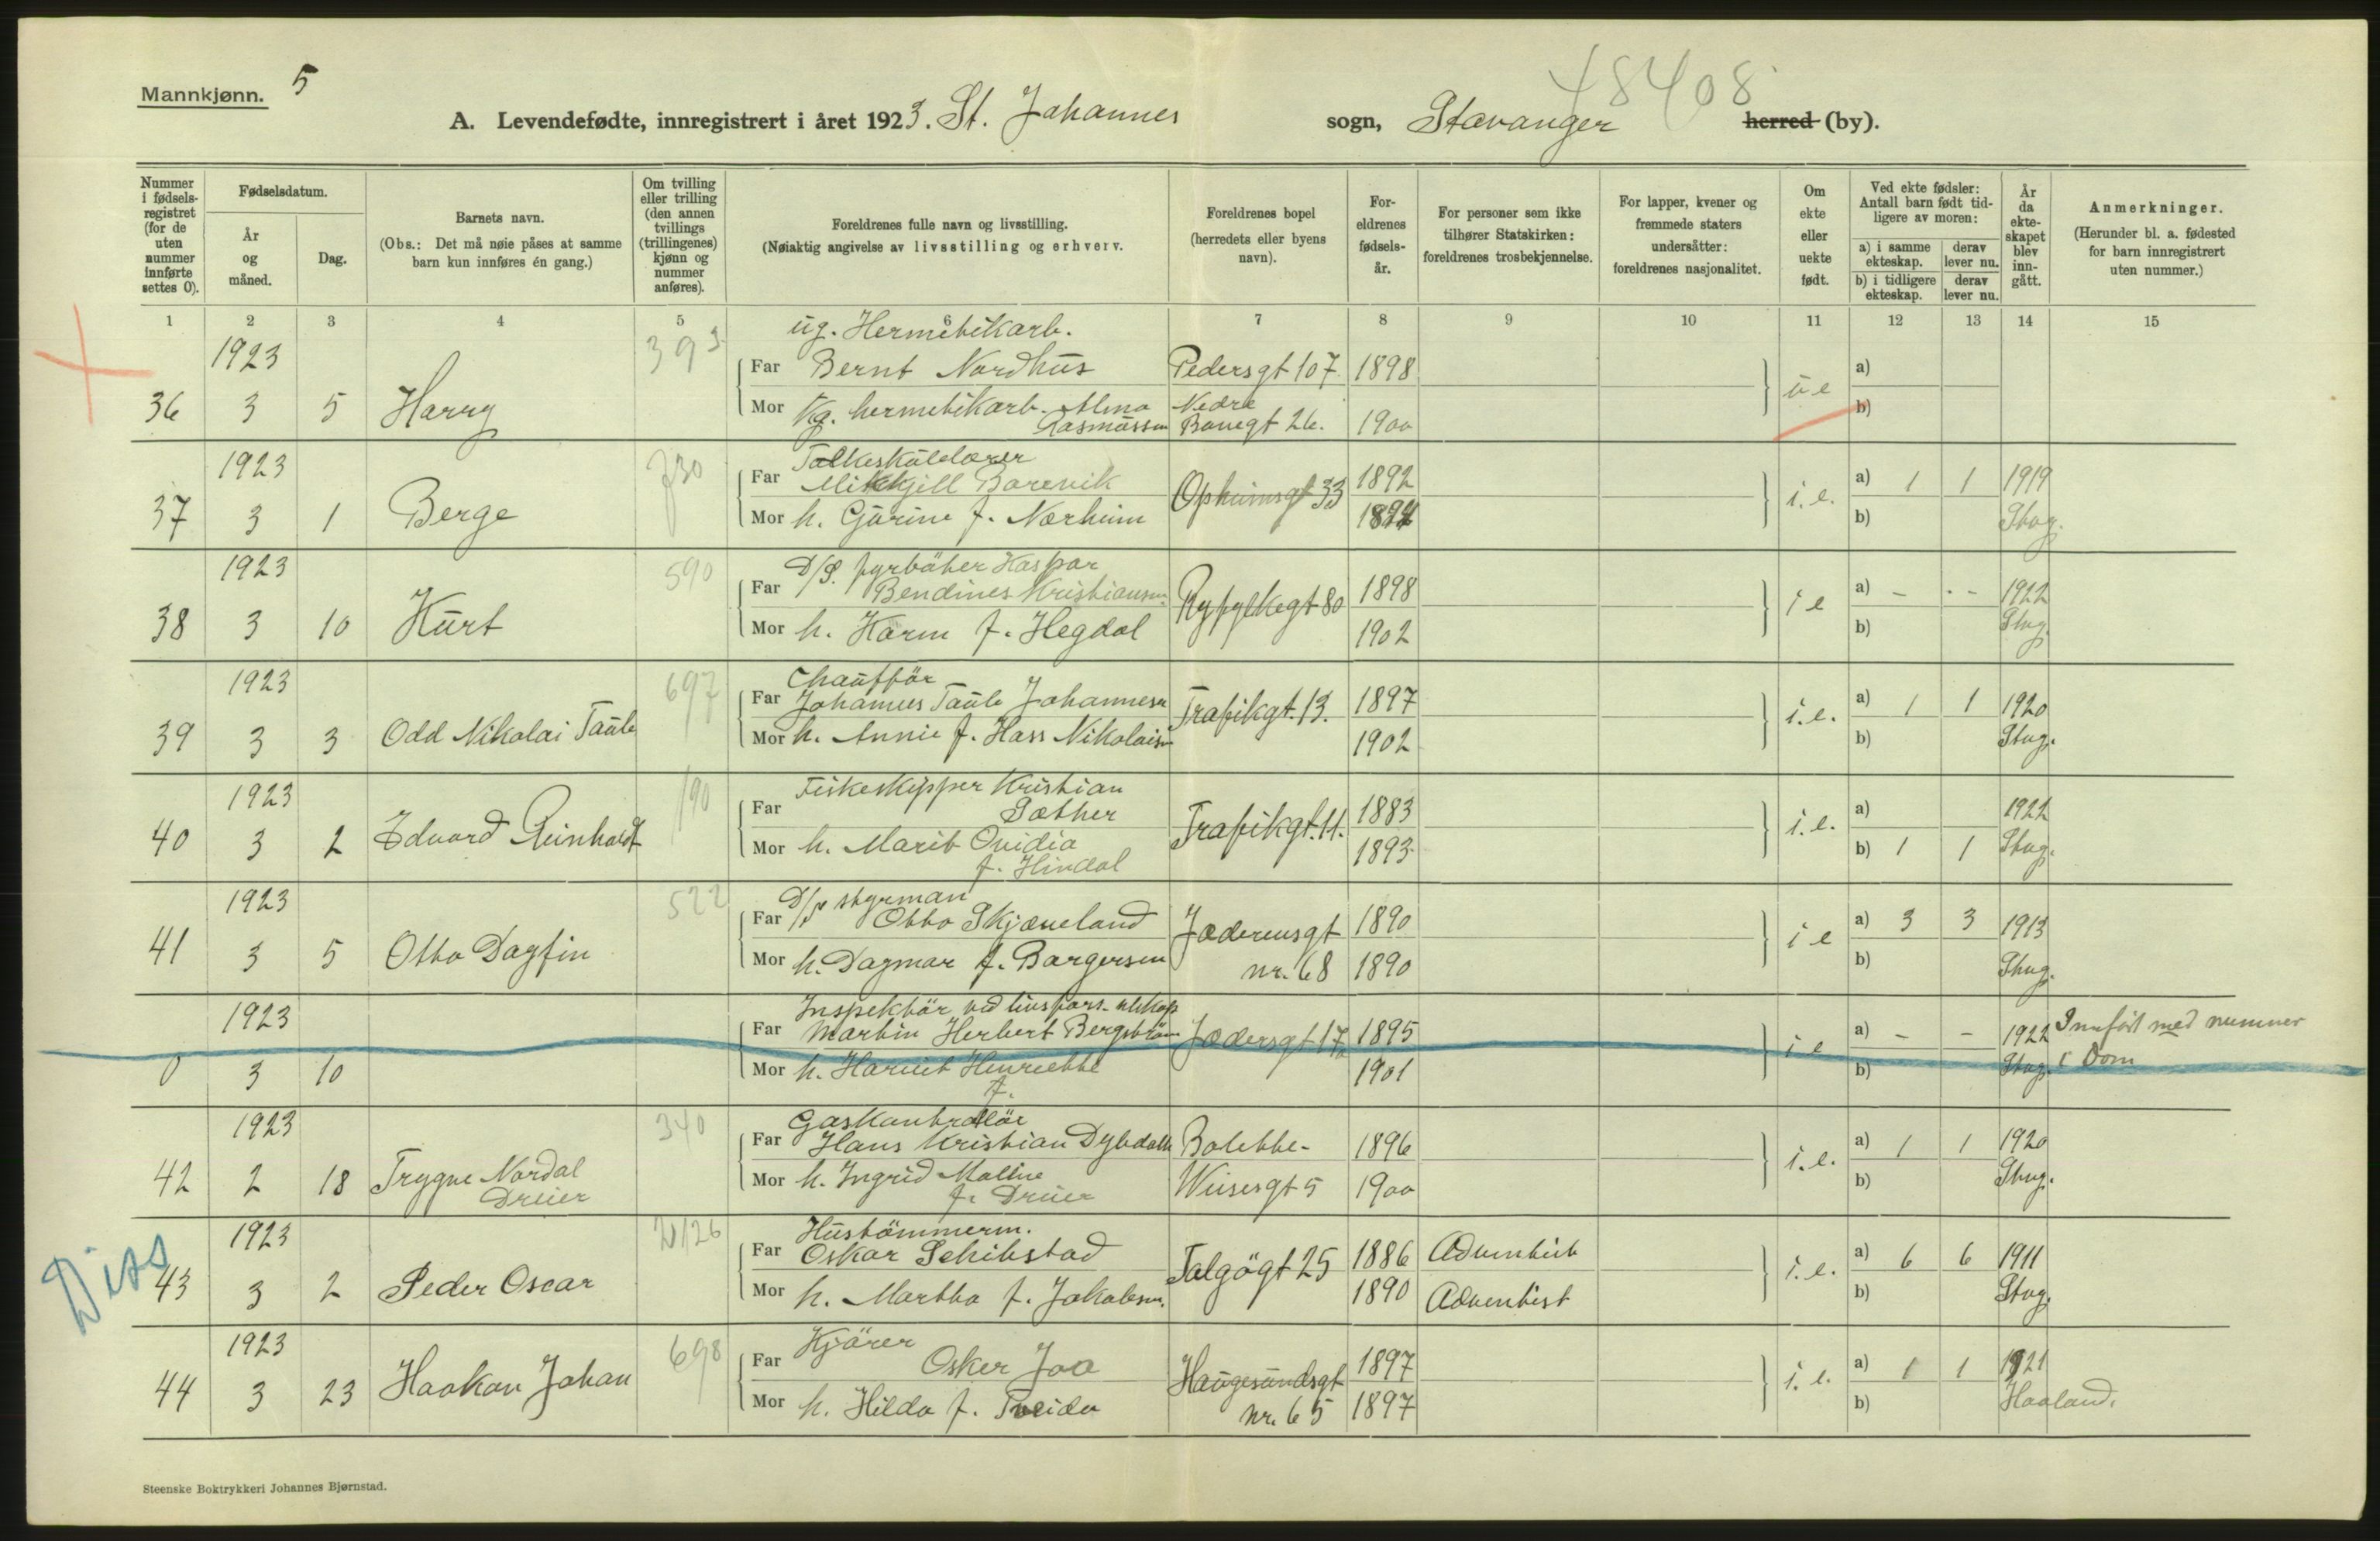 Mannkjønn. 5
48408
A. Levendefødte, innregistrert i året 1923. St. Johannes sogn, Stavanger herred (by).
Nummer i fødsels-registret (for de uten nummer innførte settes 0).
Fødselsdatum.
År og måned.
Dag.
Barnets navn.
(Obs.: Det må nøie påses at samme barn kun innføres én gang.)
Om tvilling eller trilling (den annen tvillings (trillingenes) kjønn og nummer anføres).
Foreldrenes fulle navn og livsstilling.
(Nøiaktig angivelse av livsstilling og erhverv.
Foreldrenes bopel (herredets eller byens navn).
For-eldrenes fødsels-år.
For personer som ikke tilhører Statskirken: foreldrenes trosbekjennelse.
For lapper, kvener og fremmede staters undersåtter: foreldrenes nasjonalitet.
Om ekte eller uekte født.
Ved ekte fødsler: Antall barn født tid-ligere av moren:
a) i samme ekteskap. derav lever nu.
b) i tidligere ekteskap. derav lever nu.
År da ekte-skapet blev inn-gått.
Anmerkninger.
(Herunder bl. a. fødested for barn innregistrert uten nummer.)
1 2 3 4 5 6 7 8 9 10 11 12 13 14 15
ug. Hermetikarb.
1923 393 Far Bernt Nordhus Pedersgt 107 1898 a)
36 3 5 Harry Mor Ug. hermetikarb. Alma Nedre ue b)
Rasmussen Banegt 26. 1900
1923 730 Folkeskulelærer
Far Mikkjell Barevik 1892 a) 1 1 1919
37 3 1 Berge Opheimsgt 33 i.e.
Mor h. Gurine f. Nærheim b) Stvg.
1923 590 D/S. fyrbøter Kaspar
Far Bendines Kristiansen 1898 a) - - - 1922
38 3 10 Kurt Ryfylkegt 80 i e
Mor h. Karen f. Hegdal 1902 b) Stvg.
1923 697 Chauffør
Far Johannes Taule Johannesen 1897 a) 1 1 1920
39 3 3 Odd Nikolai Taule Trafikgt. 13. i.e.
Mor h. Annie f. Hass Nikolaisen 1902 b) Stvg.
1923 190 Fiskeskipper Kristian
Far Sæther 1883 a) 1922
40 3 2 Edvard Reinholdt Trafikgt. 11. i.e.
Mor h. Marit Ovidia 1893 b) 1 1 Stvg.
f. Hindal
1923 522 D/S styrman
Far Otto Skjæveland Jæderensgt 1890 a) 3 3 1913
41 3 5 Otto Dagfin i e
Mor h. Dagmar f. Børgersen nr. 68 1890 b) Stvg.
1923 Inspektør ved livsfors. selskap
Far Martin Herbert Bergstrøm Jædersgt 17 1895 a) - - 1922 Innført med nummer
0 3 10 i e
Mor h. Harriet Henriette 1901 b) Stvg. i Dom
f.
1923 340 Gaskontrollør
Far Hans Kristian Dybdahl Bolette- 1896 a) 1 1 1920
42 2 18 Trygve Nordal i.e.
Dreier Mor h. Ingrid Maline Wiisesgt 5 1900 b) Stvg.
f. Dreier
1923 Hustømmerm.
Diss Far Oskar Schibstad 1886 Adventist a) 6 6 1911
43 3 2 Peder Oscar Talgøgt 25 i.e.
Mor h. Martha f. Jakobsen. 1890 Adventist b) Stvg.
1923 698 Kjører
Far Osker Joa Haugesundsgt 1897 a) 1 1 1921
44 3 23 Haakon Johan i.e.
Mor h. Hilda f. Tveida nr. 65 1897 b) Haaland.
Steenske Boktrykkeri Johannes Bjørnstad.